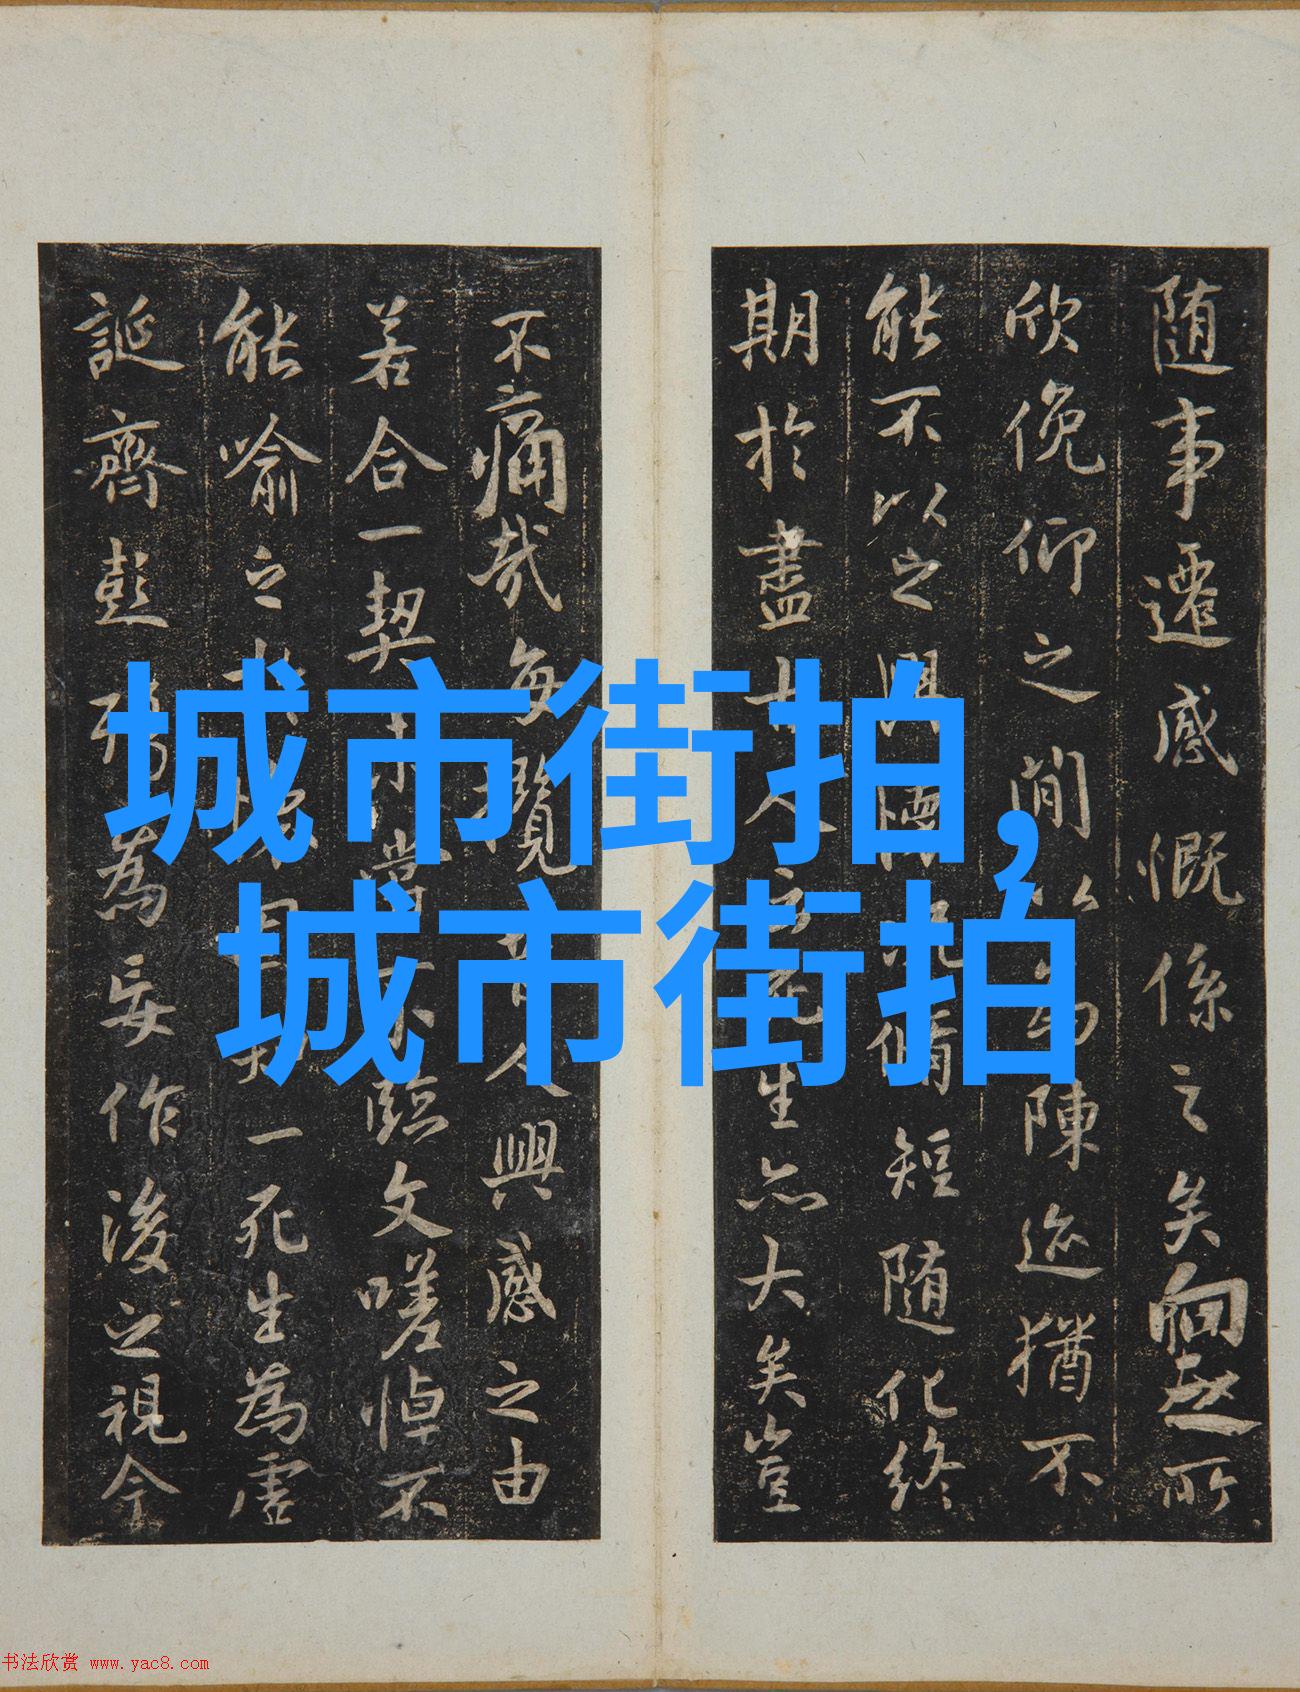 随事遷感慨係之矣向之所
欣俛仰之閒以為陳迹猶不
能不以之興懷況脩短随化終
期於盡古人云死生亦大矣豈
不痛哉每攬昔人興感之由
若合一契未嘗不臨文嗟悼不
能喻之於懷固知一死生為虛
誕齊彭殤為妄作後之視今
城市街拍,
城市街拍
书法欣赏 www.yac8.com